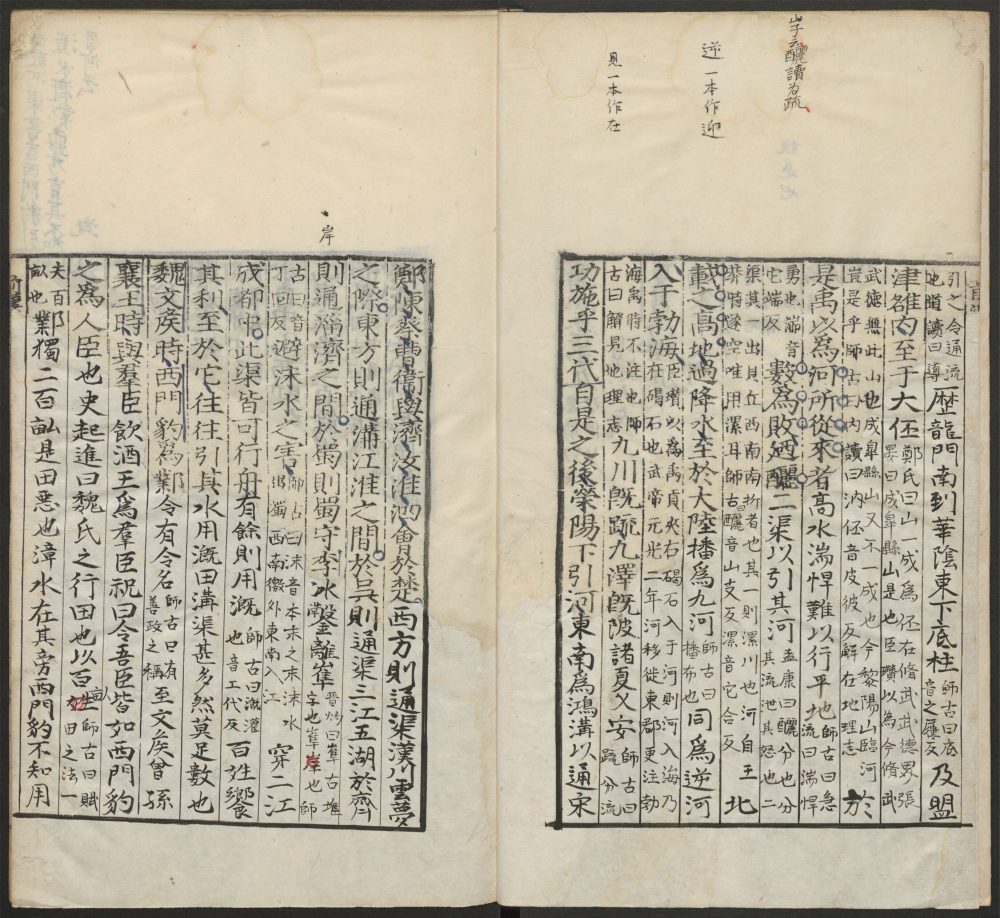 山子云釃讀为疏
逆一本作迎
見一本作在
引之令通流
也道讀曰導
歴龍門南到華陰東下底柱
師古曰底
音之履反
及盟
津雒内至于大伾
鄭氏曰山一成爲伾在脩武武德界張
晏曰成皐縣山是也臣瓚以爲今脩武
武德無此山也成皐縣山又不一成也今黎陽山臨河
豈是乎師古曰内讀曰汭伾音皮彼反解在地理志
於
是禹以爲河所從來者高水湍悍難以行平地
師古曰急
流曰湍悍
勇也湍音
它端反
數爲敗迺釃二渠以引其河
孟康曰釃分也分
其流泄其怒也二
渠其一出貝丘西南南折者也其一則漯川也河自王
莽時遂空唯用漯耳師古曰釃音山支反漯音它合反
北
載之高地過降水至於大陸播爲九河
師古曰
播布也
同爲逆河
入于勃海
臣瓚以爲禹貢夾右碣石入于河則河入海乃
在碣石也武帝元光二年河移徙東郡更注勃
海禹時不注也師
古曰解見地理志
九川旣疏九澤旣陂諸夏乂安
師古曰
疏分流
功施乎三代自是之後滎陽下引河東南爲鴻溝以通宋
岸
鄭陳蔡曹衛與濟汝淮泗會於楚西方則通渠漢川雲夢
之際東方則通溝江淮之間於吳則通渠三江五湖於齊
則通淄濟之間於蜀則蜀守李冰鑿離崔
晉灼曰崔古堆
字也崔岸也師
古曰音
丁回反
避沫水之害
師古曰沫音本末之末沫水
出蜀西南徼外東南入江
穿二江
成都中此渠皆可行舟有餘則用溉
師古曰溉灌
也音工代反
百姓饗
其利至於它往往引其水用溉田溝渠甚多然莫足數也
魏文侯時西門豹爲鄴令有令名
師古曰有
善政之稱
至文侯曾孫
襄王時與羣臣飲酒王爲羣臣祝曰令吾臣皆如西門豹
之爲人臣也史起進曰魏氏之行田也以百畝
師古曰賦
田之法一
夫百
畝也
鄴獨二百畝是田惡也漳水在其旁西門豹不知用